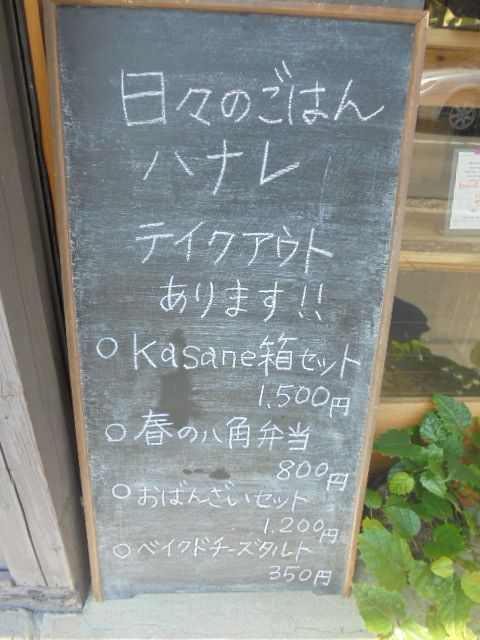 日々のごはん
ハナレ
テイクアウト
あります!!
○ Kasane箱セット
1,500円
○ 春の八角弁当
800円
○ おばんざいセット
1,200円
○ ベイクドチーズタルト
350円